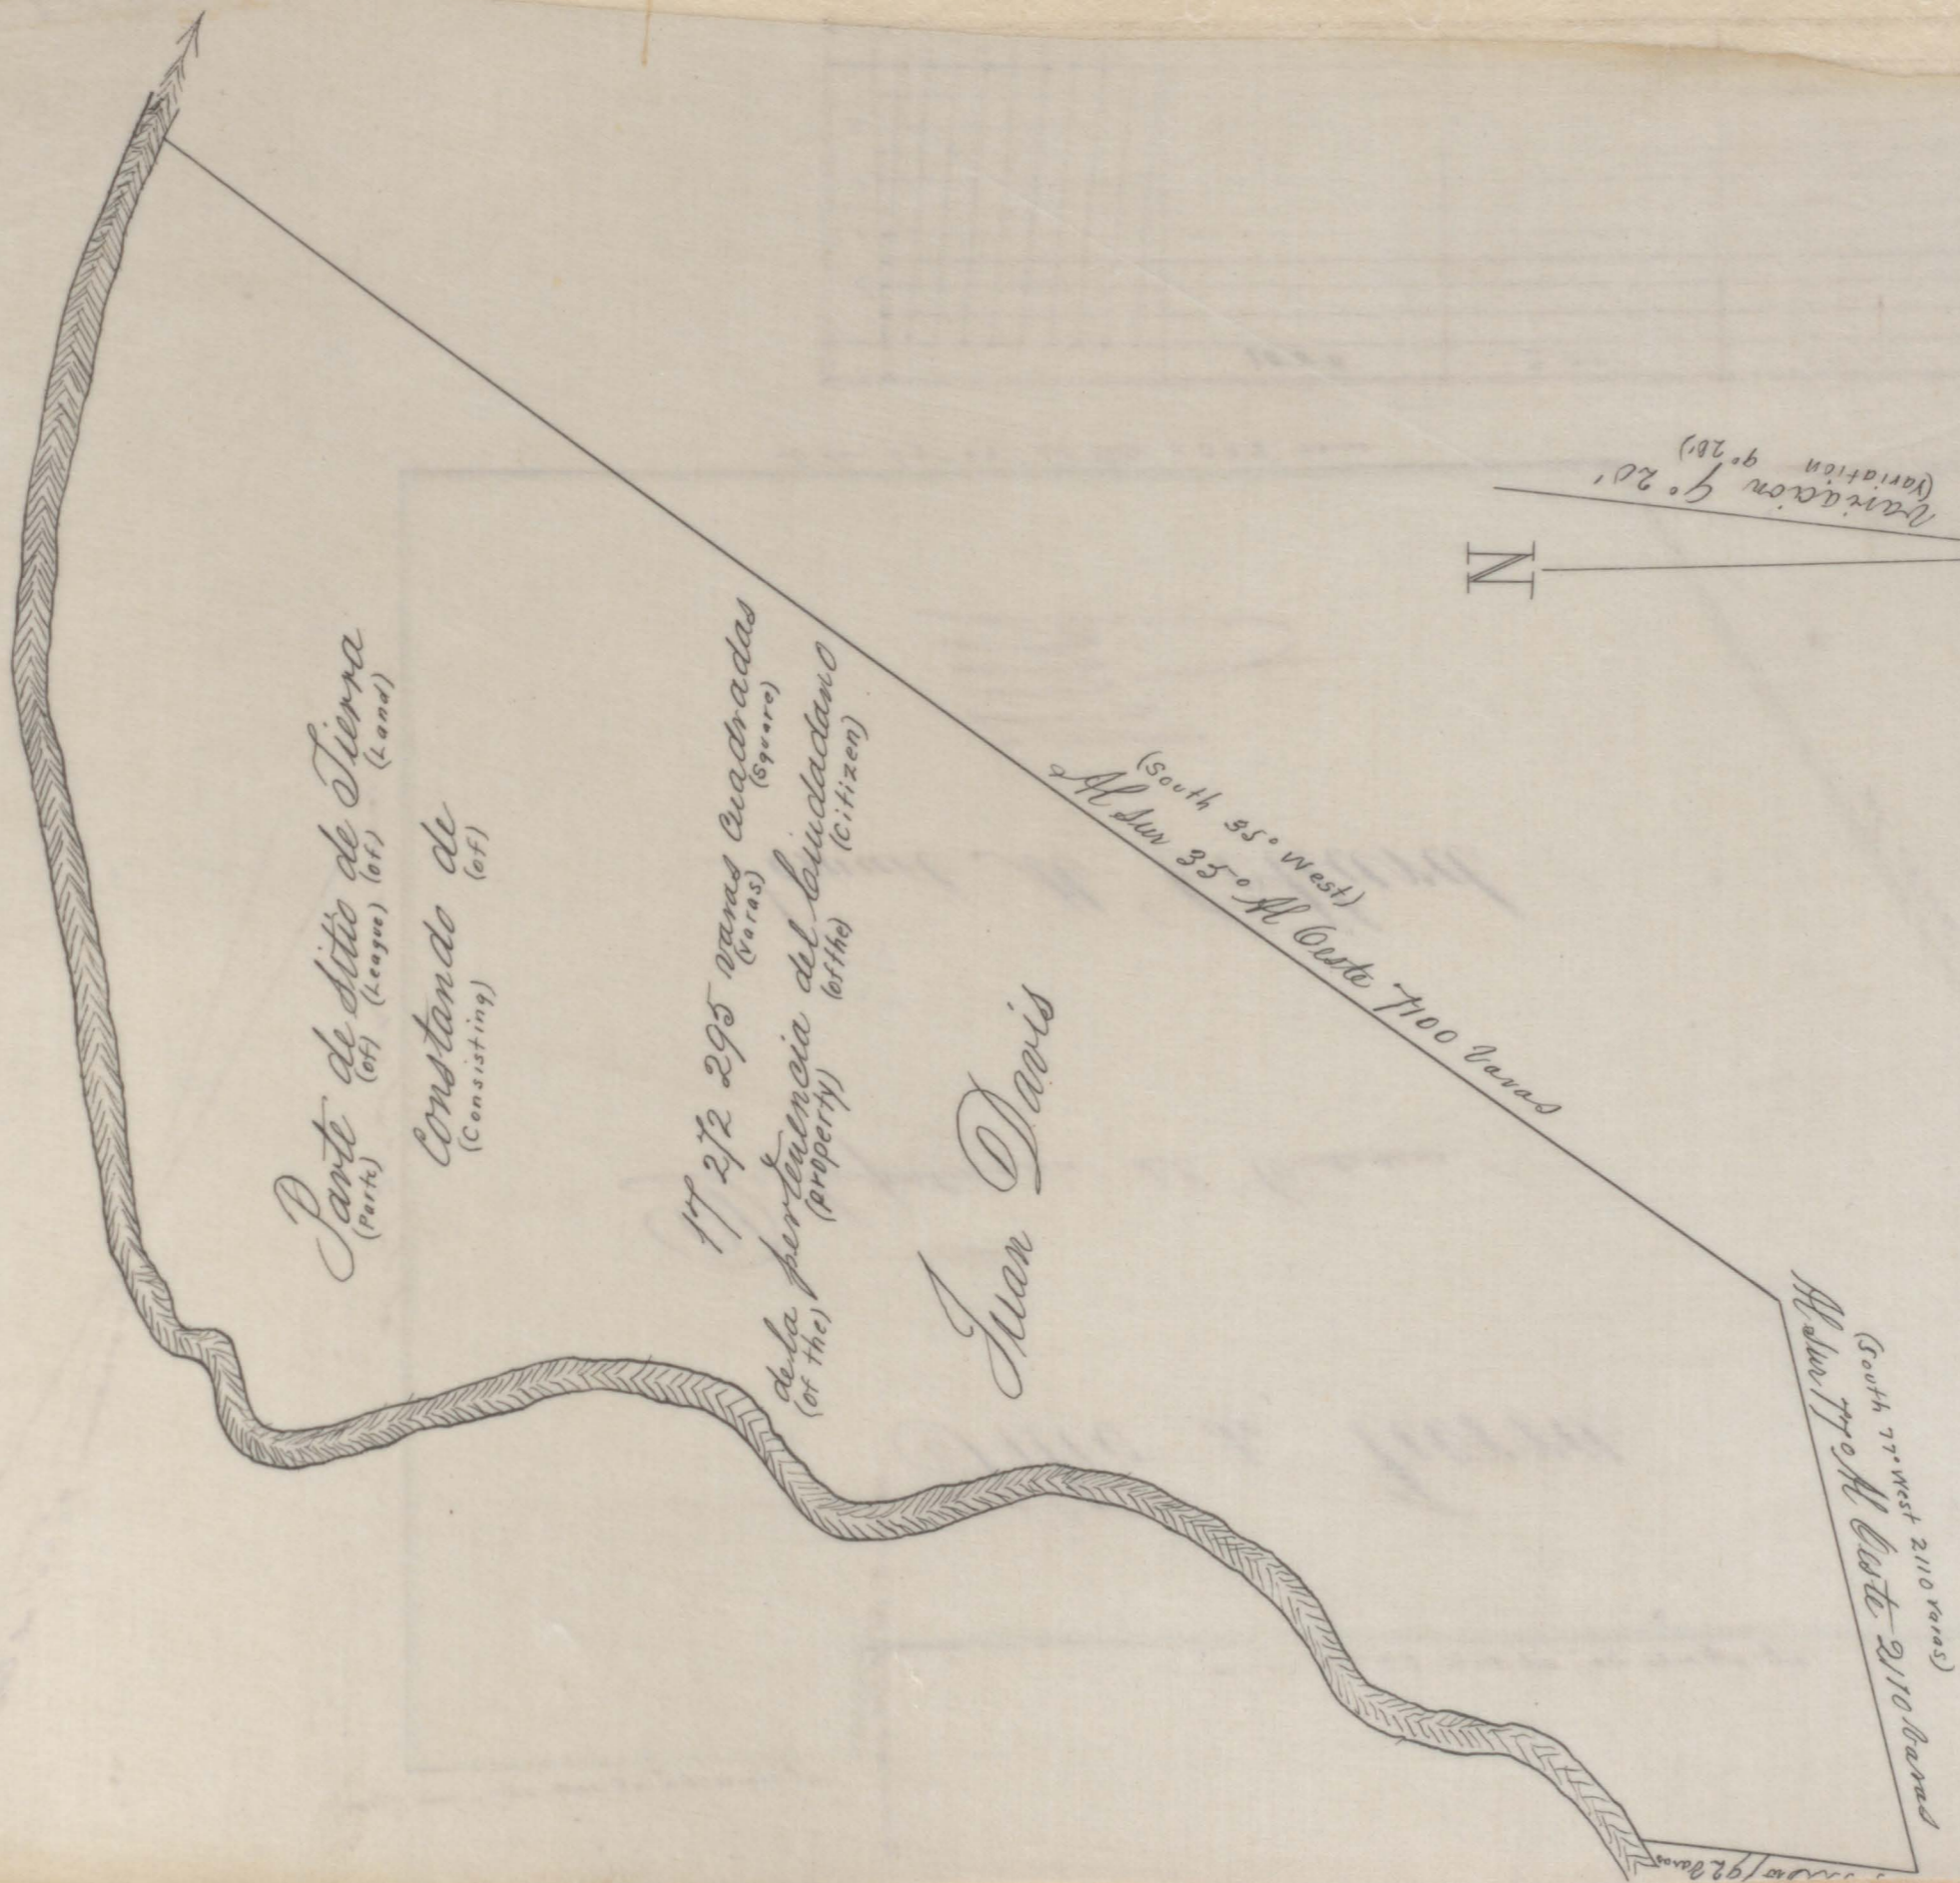 Parte de Sitio de Tierra
(Parte) (of) (League) (of) (Land)
Constando de
(Consisting) (of)
17 272 295 varas Cuadradas
(Varas) (Square)
de la pertenencia del Ciudadano
(of the) (property) (of the) (Citizen)
Juan Davis
(South 35° West)
Al Sur 35° Al Oeste 7100 Varas
(South 77° West 2110 varas)
Al Sur 77° Al Oeste 2110 Varas
Varas
N
Variacion 9° 20'
(Variation 9° 20')